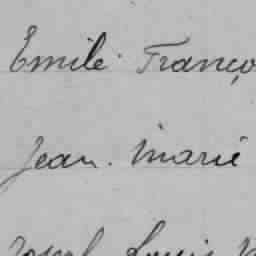 Emile Franço
Jean. Marie
Joseph Louis